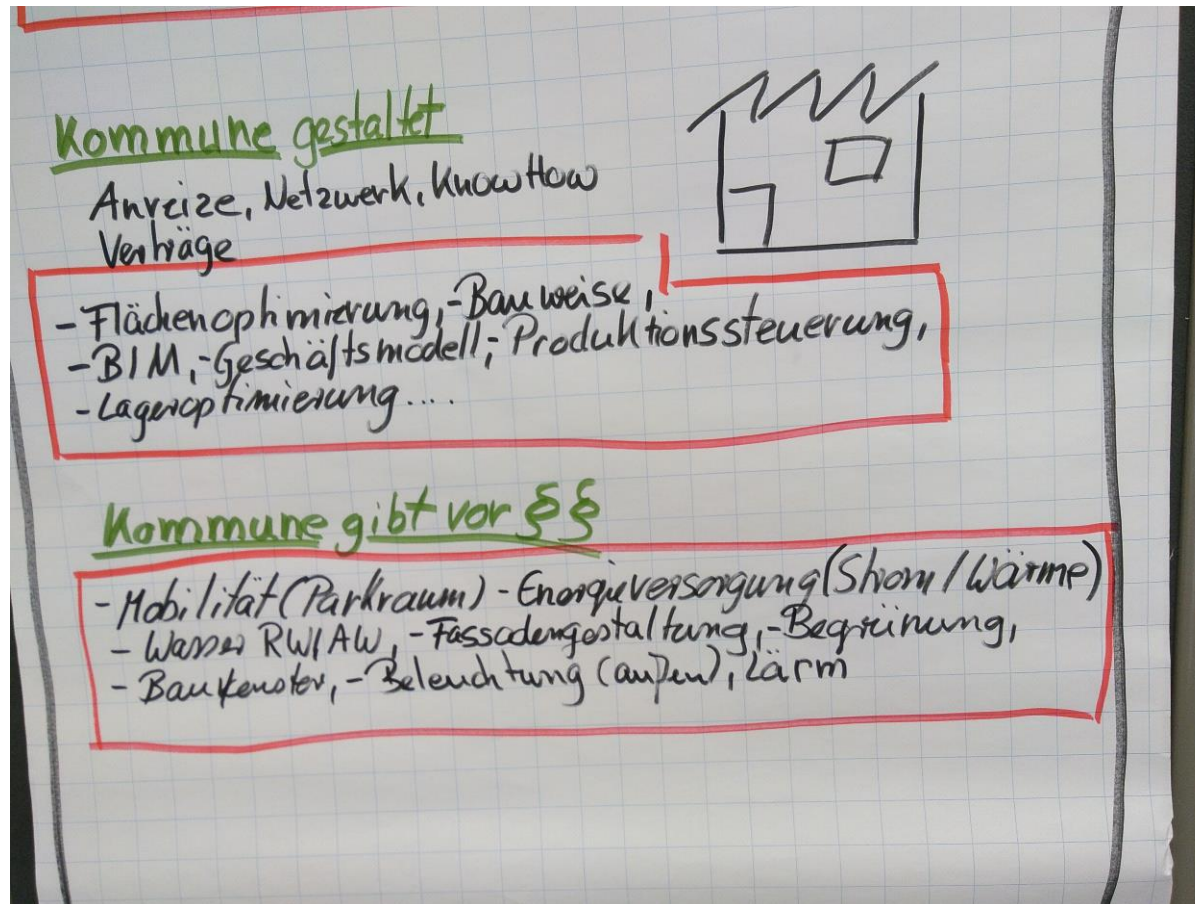 Kommune gestaltet
Anreize, Netzwerk, KnowHow
Verträge
- Flächenoptimierung, - Bauweise,
- BIM, - Geschäftsmodell, - Produktionssteuerung,
- Lageroptimierung....
Kommune gibt vor §§
- Mobilität (Parkraum) - Energieversorgung (Strom / Wärme)
- Wasser RW/AW, - Fassadengestaltung, - Begrünung,
- Baufenster, - Beleuchtung (außen), Lärm